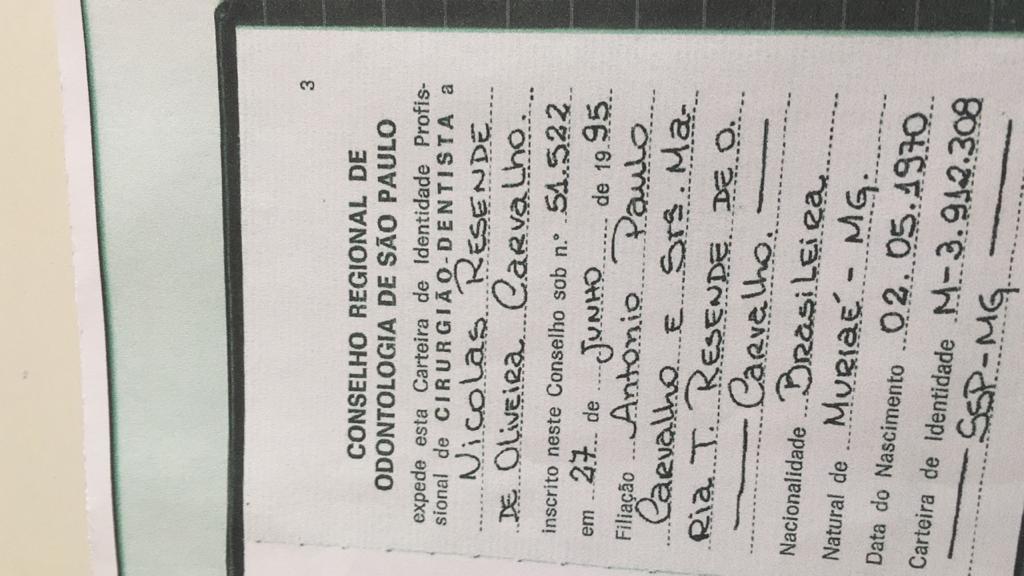 3
CONSELHO REGIONAL DE
ODONTOLOGIA DE SÃO PAULO
expede esta Carteira de Identidade Profis-
sional de CIRURGIÃO-DENTISTA a
NICOLAS RESENDE
DE OLIVEIRA CARVALHO.
inscrito neste Conselho sob n.º 51.522
em 27 de JUNHO de 1995
Filiação Antonio Paulo
Carvalho E Sra. Ma-
Ria T. RESENDE DE O.
Carvalho.
Nacionalidade BrasiLeira
Natural de MURIAÉ - MG.
Data do Nascimento 02.05.1970
Carteira de Identidade M-3.912.308
SSP-MG.